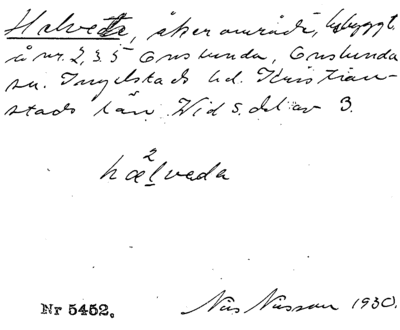 Helvete, åkerområde, bebyggt.
å nr. 2, 3, 5 Önslunda, Önslunda
sn. Ingelstads hd. Kristian-
stads län. Wid s. del av 3.
2
hælveda
Nr 5452. Nils Nilsson 1930.